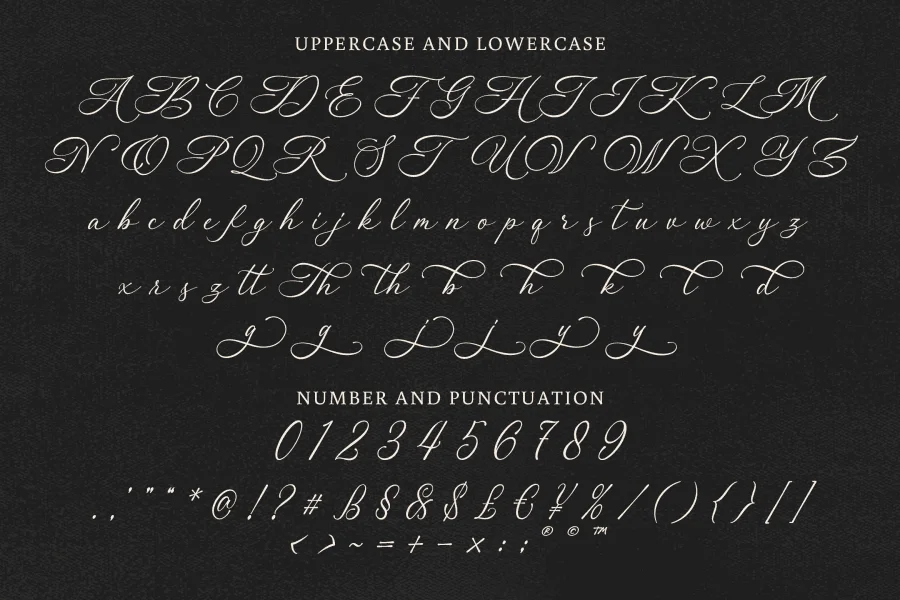 UPPERCASE AND LOWERCASE
A B C D E F G H I J K L M
N O P Q R S T U V W X Y Z
a b c d e f g h i j k l m n o p q r s t u v w x y z
x r s z tt Th th b h k t d
g g j j y y
NUMBER AND PUNCTUATION
0 1 2 3 4 5 6 7 8 9
. , ' " “ * @ ! ? # ß § & $ £ € ¥ % / ( ) { } [ ]
< > ~ = + - × : ; ® © ™